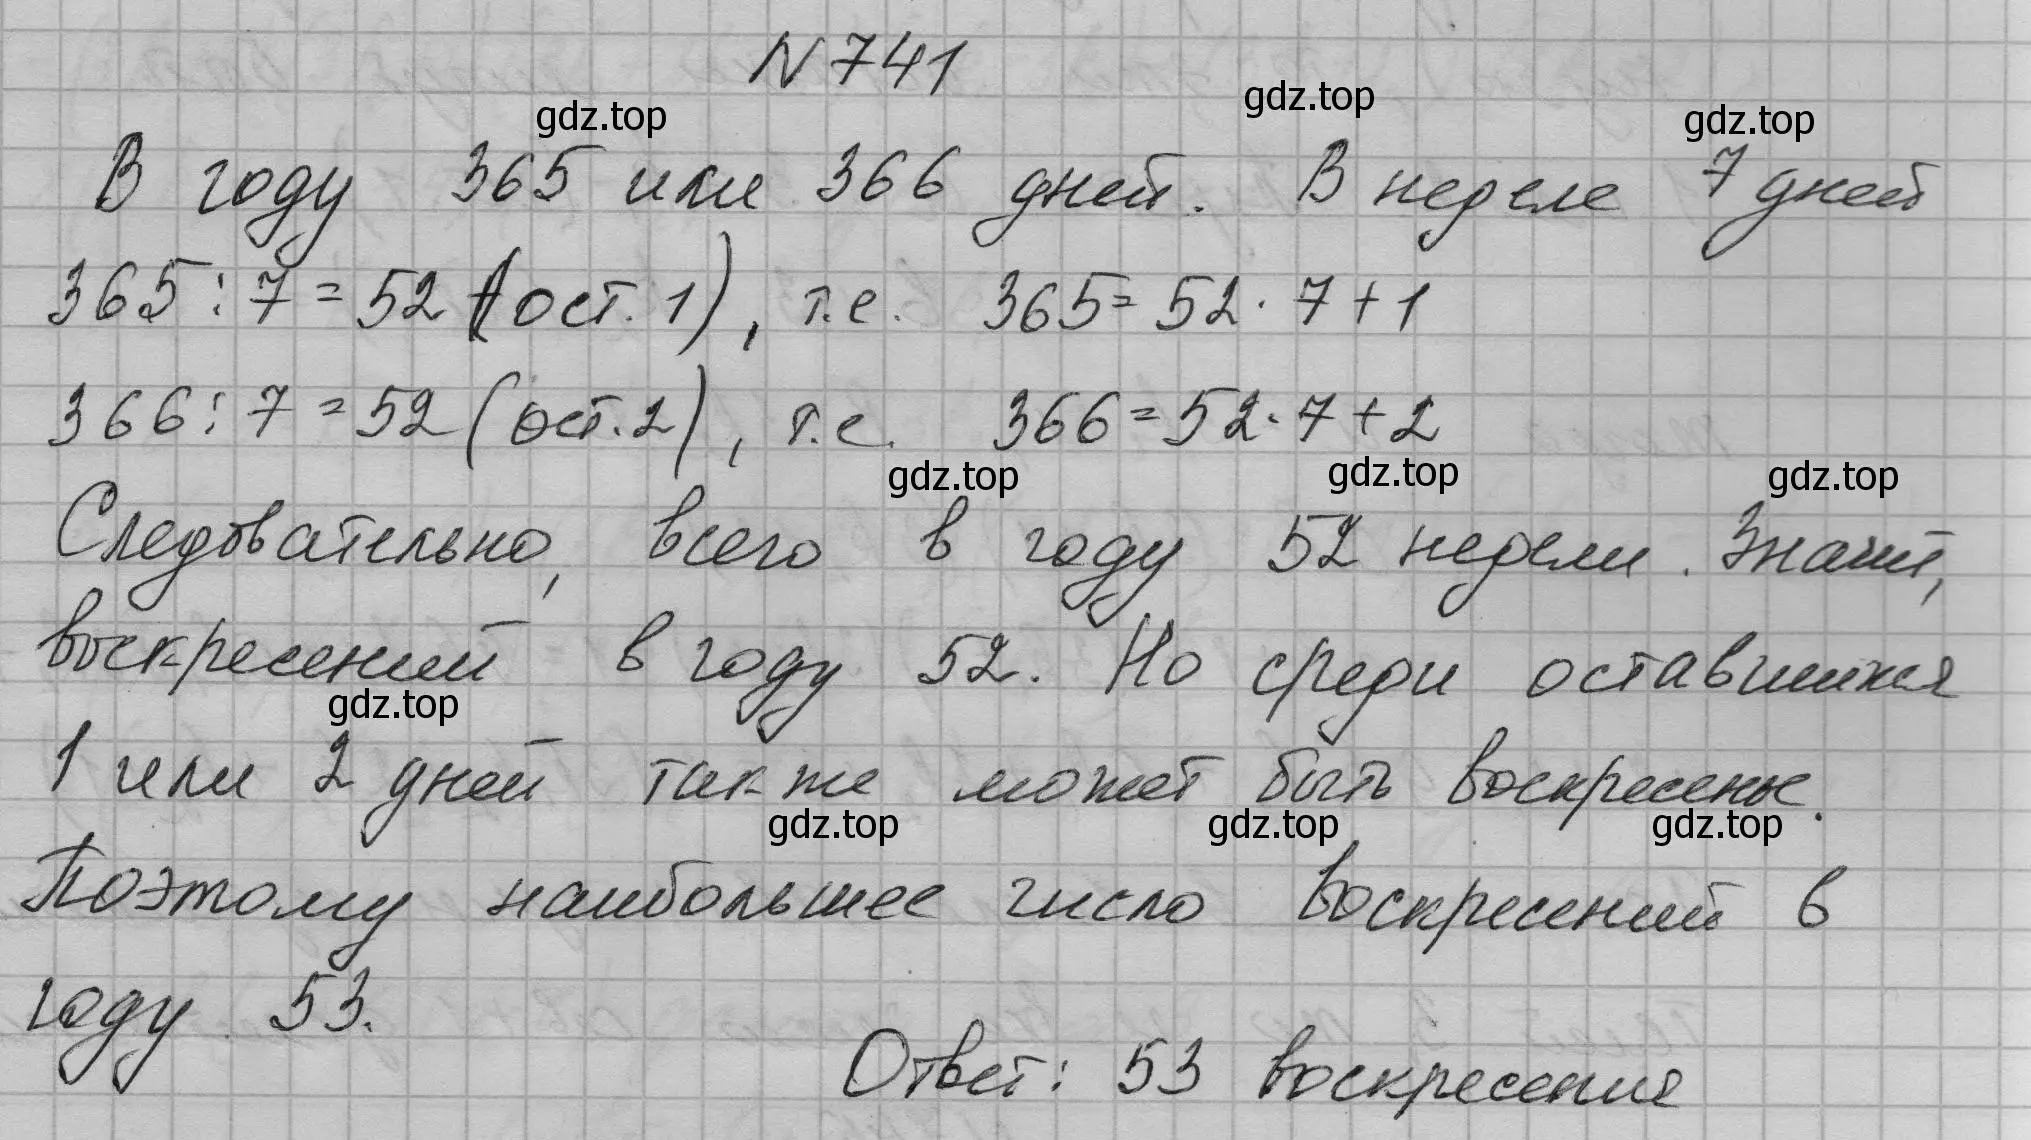 N 741
gdz.top gdz.top gdz.top
В году 365 или 366 дней. В неделе 7 дней
365 : 7 = 52 (ост. 1), т.е. 365 = 52 · 7 + 1
366 : 7 = 52 (ост. 2), т.е. 366 = 52 · 7 + 2
gdz.top gdz.top gdz.top
Следовательно, всего в году 52 недели. Значит,
воскресений в году 52. Но среди оставшихся
gdz.top
1 или 2 дней также может быть воскресенье.
gdz.top gdz.top gdz.top
Поэтому наибольшее число воскресений в
году 53.
Ответ: 53 воскресения